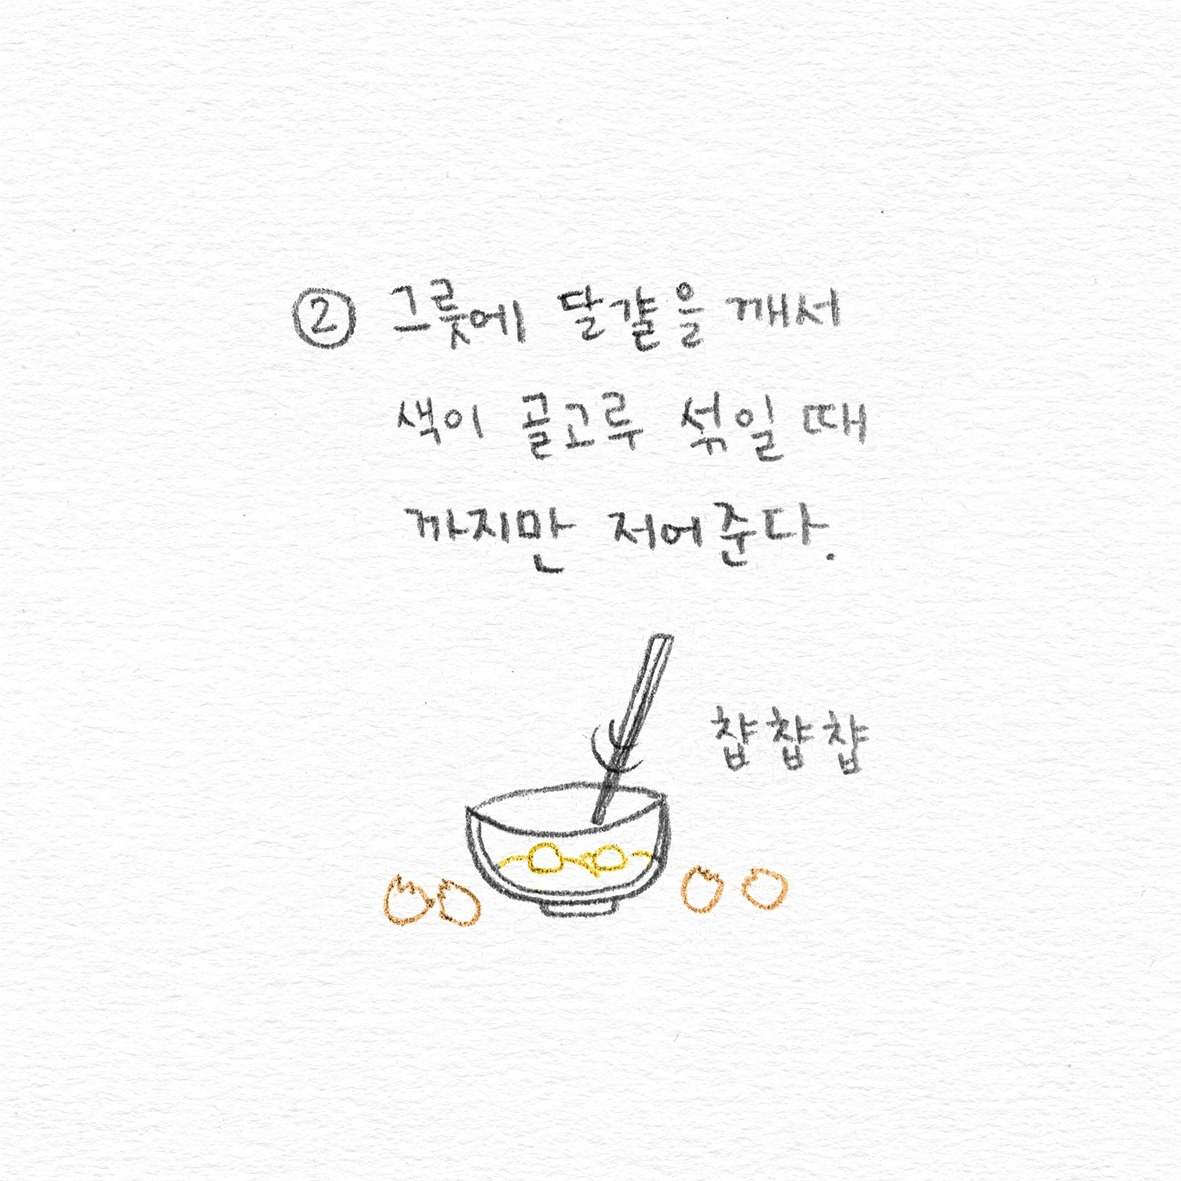 ② 그릇에 달걀을 깨서
색이 골고루 섞일 때
까지만 저어준다.
챱챱챱